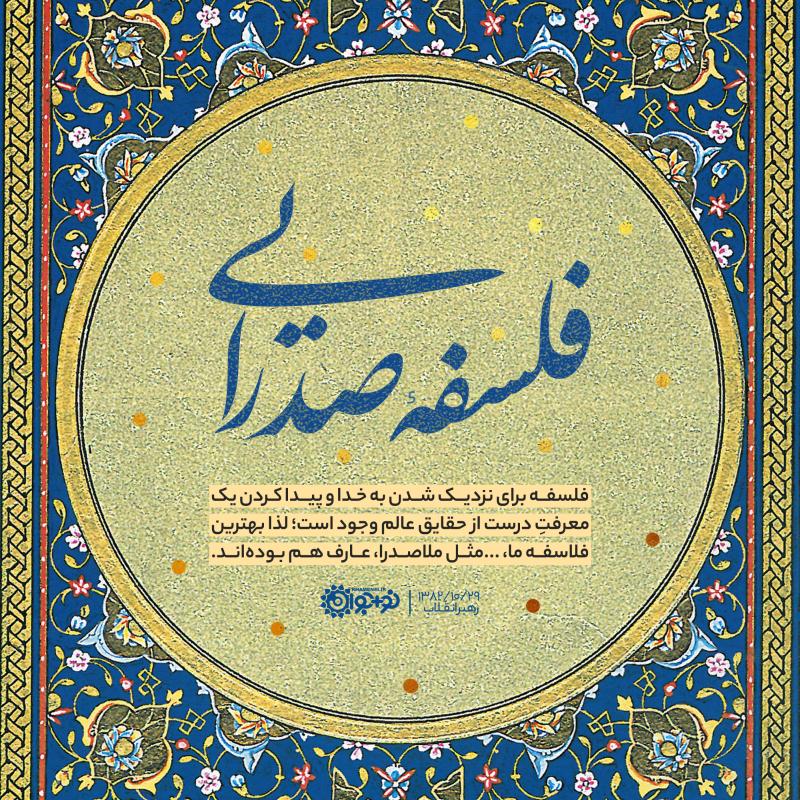 فلسفهٔ صدرایی
فلسفه برای نزدیک شدن به خدا و پیدا کردن یک
معرفتِ درست از حقایق عالم وجود است؛ لذا بهترین
فلاسفه ما، ...مثل ملاصدرا، عارف هم بوده‌اند.
۱۳۸۲/۱۰/۲۹
رهبر انقلاب
KHAMENEI.IR
نوجوان